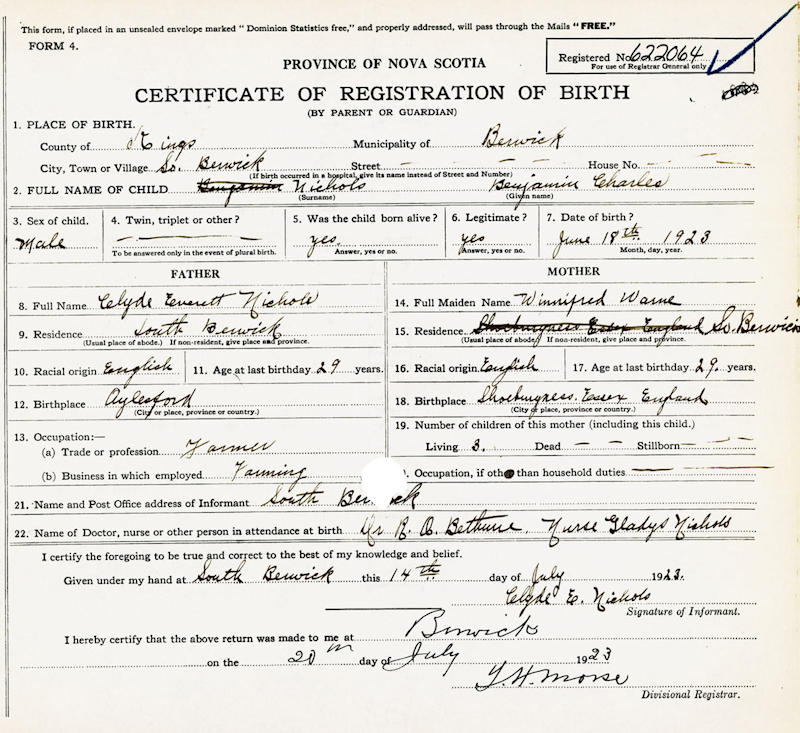 This form, if placed in an unsealed envelope marked "Dominion Statistics free," and properly addressed, will pass through the Mails "FREE."
FORM 4.
Registered No 622064
For use of Registrar General only
PROVINCE OF NOVA SCOTIA
CERTIFICATE OF REGISTRATION OF BIRTH
(BY PARENT OR GUARDIAN)
1. PLACE OF BIRTH.
County of Kings Municipality of Berwick
City, Town or Village So. Berwick Street — — — House No. — —
(If birth occurred in a hospital, give its name instead of Street and Number)
2. FULL NAME OF CHILD Benjamin Nichols Benjamin Charles
(Surname) (Given name)
3. Sex of child. 4. Twin, triplet or other? 5. Was the child born alive? 6. Legitimate? 7. Date of birth?
Male — yes yes June 18th 1923
To be answered only in the event of plural birth. Answer, yes or no. Answer, yes or no. Month, day, year.
FATHER
8. Full Name Clyde Everett Nichols
9. Residence South Berwick
(Usual place of abode.) If non-resident, give place and province.
10. Racial origin English 11. Age at last birthday 29 years.
12. Birthplace Aylesford
(City or place, province or country.)
13. Occupation:—
(a) Trade or profession Farmer
(b) Business in which employed Farming
MOTHER
14. Full Maiden Name Winnifred Warne
15. Residence Shoeburyness Essex England So. Berwick
(Usual place of abode.) If non-resident, give place and province.
16. Racial origin English 17. Age at last birthday 29. years.
18. Birthplace Shoeburyness. Essex England
(City or place, province or country.)
19. Number of children of this mother (including this child.)
Living 3. Dead — — Stillborn — —
. Occupation, if other than household duties —
21. Name and Post Office address of Informant South Berwick
22. Name of Doctor, nurse or other person in attendance at birth Dr R. O. Bethune, Nurse Gladys Nichols
I certify the foregoing to be true and correct to the best of my knowledge and belief.
Given under my hand at South Berwick this 14th day of July 1923.
Clyde E. Nichols
Signature of Informant.
I hereby certify that the above return was made to me at Berwick
on the 20th day of July 1923
Morse
Divisional Registrar.